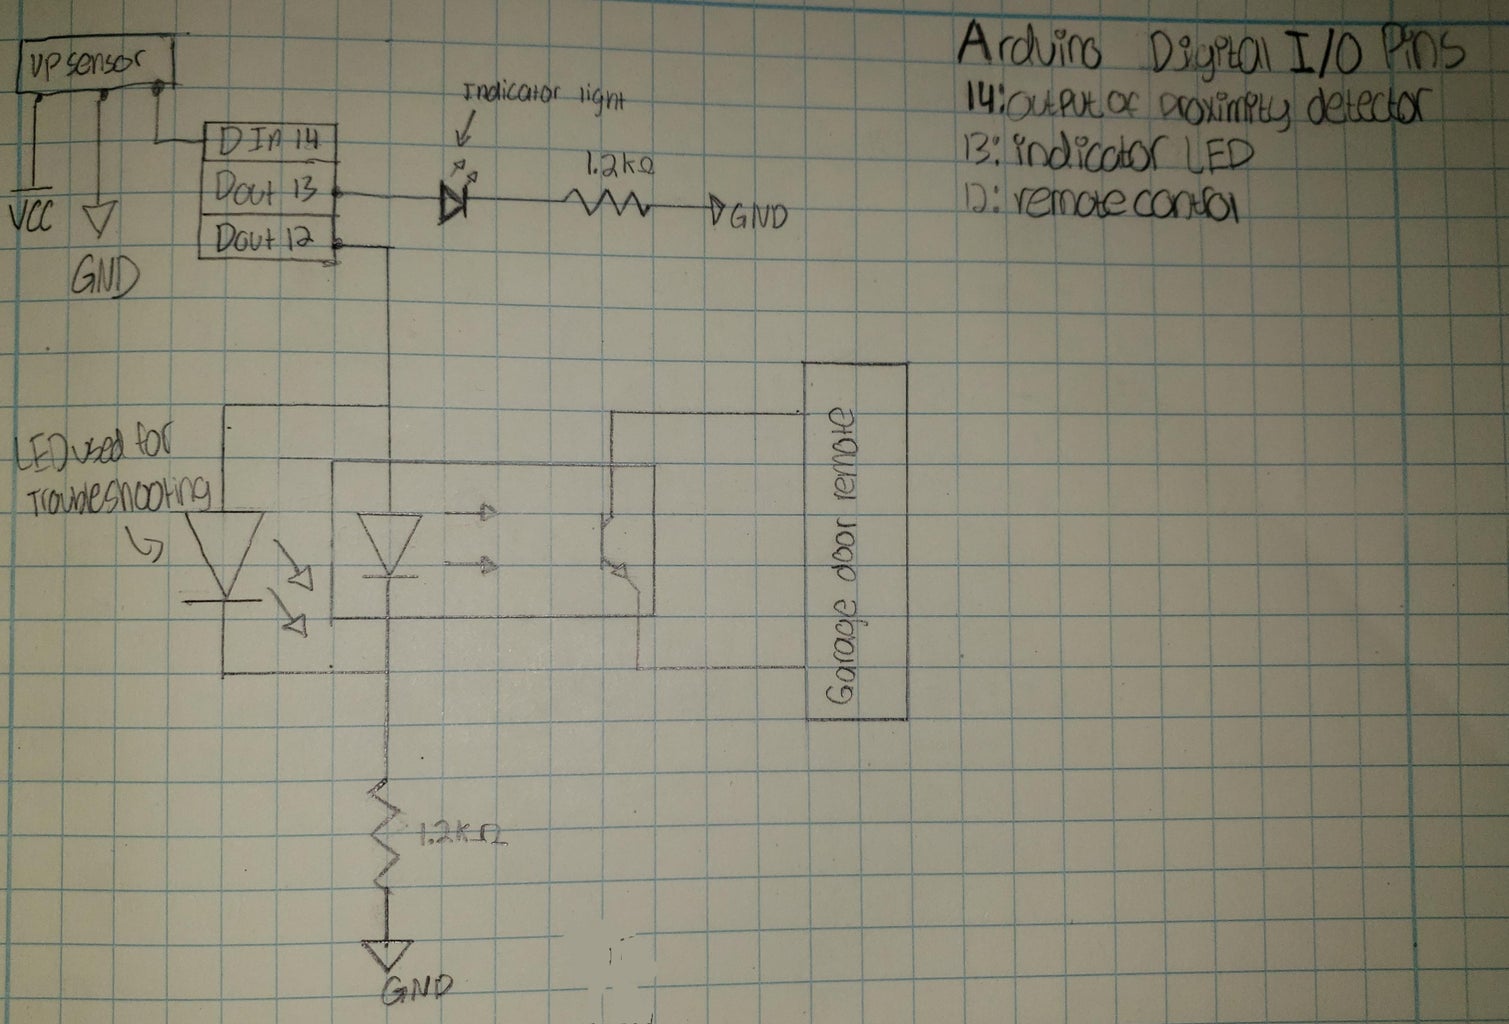 UP sensor
Arduino Digital I/O Pins
14: output of proximity detector
13: indicator LED
12: remote control
Indicator light
DIn 14
Dout 13
Dout 12
1.2kΩ
GND
VCC
GND
LED used for
Troubleshooting
Garage door remote
1.2KΩ
GND